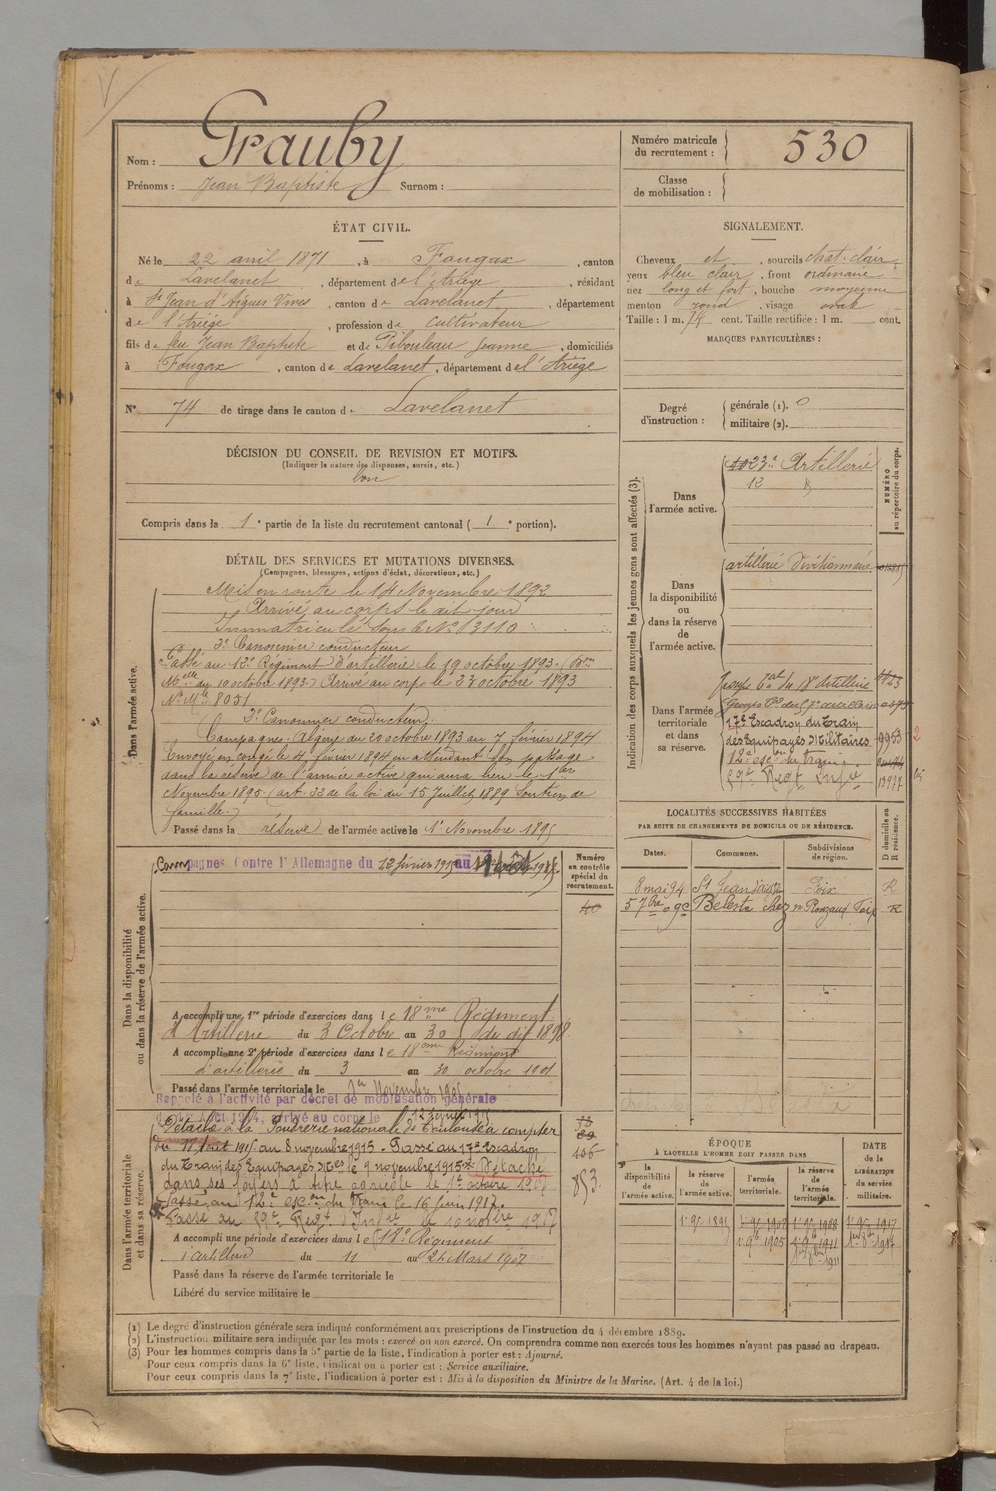 V
Nom : Grauby
Prénoms : Jean Baptiste Surnom :
Numéro matricule du recrutement : 530
Classe de mobilisation :
ÉTAT CIVIL.
Né le 22 avril 1871, à Fougax, canton
de Lavelanet, département de l'Ariège, résidant
à St Jean d'Aigues Vives, canton de Lavelanet, département
de l'Ariège, profession de cultivateur
fils de feu Jean Baptiste et de Pibouleau Jeanne, domiciliés
à Fougax, canton de Lavelanet, département de l'Ariège
N° 74 de tirage dans le canton de Lavelanet
SIGNALEMENT.
Cheveux et, sourcils chat. clair,
yeux bleu clair, front ordinaire
nez long et fort, bouche moyenne
menton rond, visage ovale
Taille : 1 m. 74 cent. Taille rectifiée : 1 m. cent.
MARQUES PARTICULIÈRES :
Degré d'instruction : générale (1). 0
militaire (2).
DÉCISION DU CONSEIL DE REVISION ET MOTIFS.
(Indiquer la nature des dispenses, sursis, etc.)
bon
Compris dans la 1e partie de la liste du recrutement cantonal (1e portion).
DÉTAIL DES SERVICES ET MUTATIONS DIVERSES.
(Campagnes, blessures, actions d'éclat, décorations, etc.)
Dans l'armée active.
Mis en route le 14 Novembre 1892
Arrivé au corps le dit jour
Immatriculé sous le N° 13110
2e Canonnier conducteur
Passé au 12e Régiment d'artillerie le 19 octobre 1893. (Don
Mlle du 10 octobre 1893) Arrivé au corps le 23 octobre 1893
N° Mle 8051
2e Canonnier conducteur.
Campagnes: Algérie du 20 octobre 1893 au 7 février 1894
Envoyé en congé le 4 février 1894 en attendant son passage
dans la réserve de l'armée active qui aura lieu le 1er
Novembre 1895 (art. 22 de la loi du 15 Juillet 1889 Soutien de
famille.)
Passé dans la réserve de l'armée active le 1er Novembre 1895
Indication des corps auxquels les jeunes gens sont affectés (3).
NUMÉRO au répertoire du corps.
Dans l'armée active.
23e Artillerie
12 d
Dans la disponibilité ou dans la réserve de l'armée active.
artillerie Divisionnaire
Dans l'armée territoriale et dans sa réserve.
Groupe tal du 18e Artillerie
17e Escadron du Train
des Equipages Militaires 9953 2
12e esc. du train
59e Regt Infie 13977
LOCALITÉS SUCCESSIVES HABITÉES
PAR SUITE DE CHANGEMENTS DE DOMICILE OU DE RÉSIDENCE.
Dates. Communes. Subdivisions de région. D domicile ou R résidence.
8 mai 94 St Jean d'Aigues Foix R
5 7bre 09 Belesta chez Mr Rouzaud Foix R
Dans la disponibilité ou dans la réserve de l'armée active.
Numéro au contrôle spécial du recrutement.
40
Campagnes Contre l'Allemagne du 12 février 1915 au
A accompli une 1re période d'exercices dans le 18me Régiment
d'Artillerie du 3 Octobre au 30 du dit 1898
A accompli une 2e période d'exercices dans le 18eme Régiment
d'artillerie du 3 au 30 octobre 1901
Passé dans l'armée territoriale le 1er Novembre 1905
Rappelé à l'activité par décret de mobilisation générale
Dans l'armée territoriale et dans sa réserve.
Détaché à la Poudrerie nationale de Toulouse à compter
du 17 Aout 1915 au 8 novembre 1915. Passé au 17e Escadron
du Train des Equipages Mres le 9 novembre 1915. Détaché
dans ses foyers à titre agricole le 1er octobre 1917
Passé au 12e escon du train le 16 juin 1917
Passé au 59e Regt d'Infie le 10 nov.bre 1917
A accompli une période d'exercices dans le 18e Régiment
d'artillerie du 11 au 24 Mars 1907
Passé dans la réserve de l'armée territoriale le
Libéré du service militaire le
106
853.
ÉPOQUE
À LAQUELLE L'HOMME DOIT PASSER DANS
la disponibilité de l'armée active. la réserve de l'armée active. l'armée territoriale. la réserve de l'armée territoriale. DATE de la LIBÉRATION du service militaire.
1er 9bre 1895 1er 9bre 1908 1er 9bre 1917
1er 9bre 1905 1er 9bre 1911
(1) Le degré d'instruction générale sera indiqué conformément aux prescriptions de l'instruction du 4 décembre 1889.
(2) L'instruction militaire sera indiquée par les mots : exercé ou non exercé. On comprendra comme non exercés tous les hommes n'ayant pas passé au drapeau.
(3) Pour les hommes compris dans la 5e partie de la liste, l'indication à porter est : Ajourné.
Pour ceux compris dans la 6e liste, l'indication à porter est : Service auxiliaire.
Pour ceux compris dans la 7e liste, l'indication à porter est : Mis à la disposition du Ministre de la Marine. (Art. 4 de la loi.)